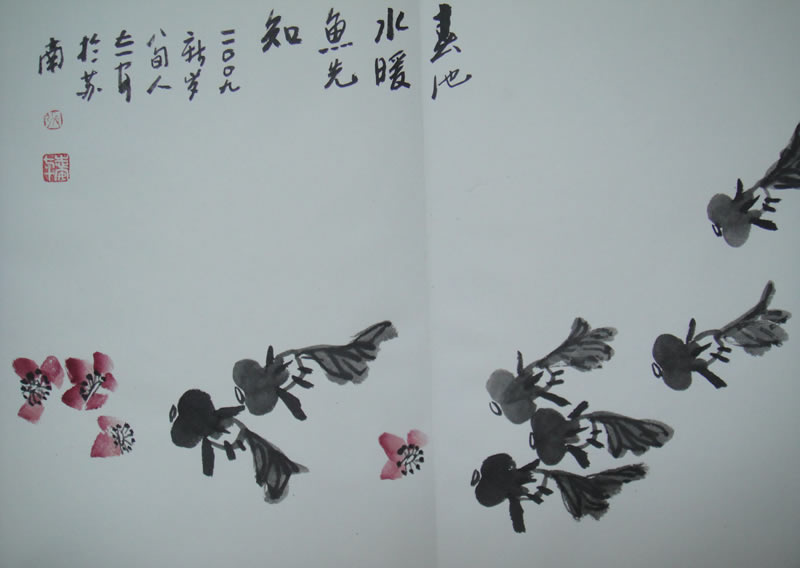 春池
水暖
魚先
知
二〇〇九
新岁
八旬人
于苏
南